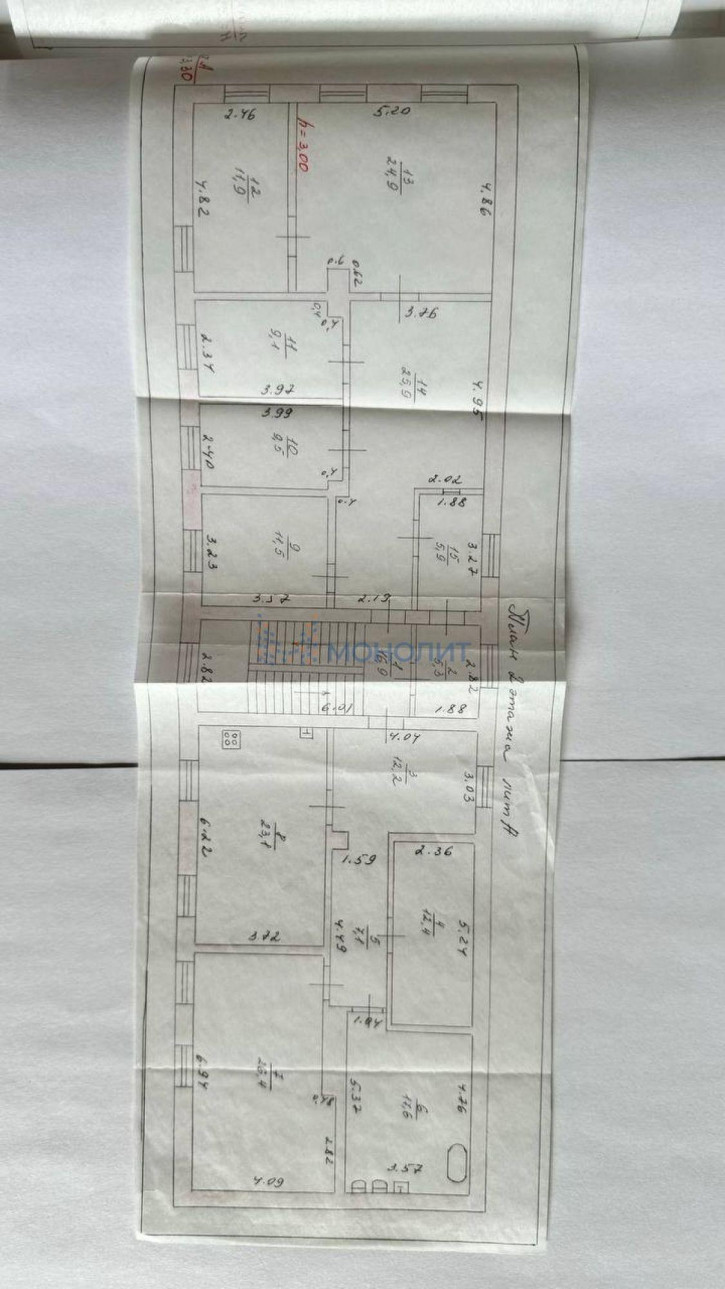 План 2 этажа лит А
h = 3,00
2.46
5.20
12
11,9
4.82
13
24,9
4.86
0.6
0.62
0,4
0.4
3.76
11
9,1
2.34
3.97
14
4.95
3.99
10
9,5
2.40
0.4
0.4
2.02
1.88
9
11,5
3.23
3.57
2.19
15
5,9
3.27
МОНОЛИТ
2.82
1
16,9
6.01
2
5,3
2.82
1.88
4.04
3
12,2
3.03
8
23,1
6.22
3.72
1.59
2.36
4
12,4
5.24
5
7,1
4.49
1.04
7
6.94
4.09
2.82
5.37
6
17,6
4.76
3.57